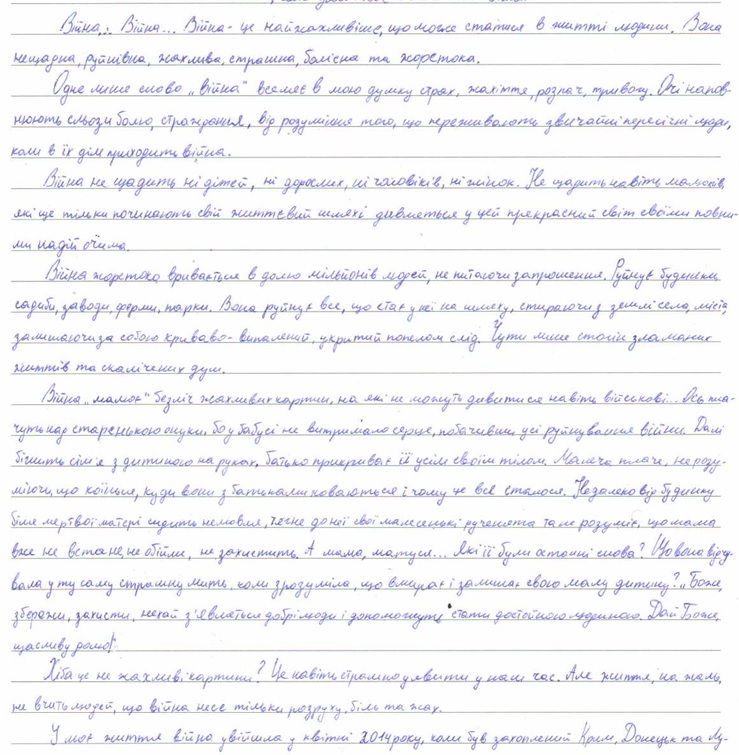 Війна.. Війна... Війна - це найжахливіше, що може статися в житті людини. Вона
нещадна, руйнівна, жахлива, страшна, болісна та жорстока.
Одне лише слово „війна" вселяє в мою думку страх, жахіття, розпач, тривогу. Очі напов-
нюють сльози болю, страждання, від розуміння того, що переживають звичайні пересічні люди,
коли в їх дім приходить війна.
Війна не щадить ні дітей, ні дорослих, ні чоловіків, ні жінок. Не щадить навіть малюків,
які ще тільки починають свій життєвий шлях і дивляться у цей прекрасний світ своїми повни-
ми надій очима.
Війна жорстоко вривається в долю мільйонів людей, не питаючи запрошення. Руйнує будинки
садиби, заводи, ферми, парки. Вона руйнує все, що стає у неї на шляху, стираючи з землі села, міста,
залишаючи за собою криваво-випалений, укритий попелом слід. Чути лише стогін зламаних
життів та скалічених душ.
Війна „малює" безліч жахливих картин, на які не можуть дивитися навіть військові... Ось пла-
чуть над старенькою онуки, бо у бабусі не витримало серце, побачивши усі руйнування війни. Далі
біжить сім'я з дитиною на руках, батько прикриває її усім своїм тілом. Малеча плаче, не розу-
міючи, що коїться, куди вони з батьками ховаються і чому це все сталося. Незалеко від будинку
біля мертвої матері сидить немовля, тягне до неї свої малесенькі рученята та не розуміє, що мама
вже не встане, не обійме, не захистить. А мама, матуся... Які її були останні слова? Що вона відчу-
вала у ту саму страшну мить, коли зрозуміла, що вмирає і залишає свою малу дитину? „Боже,
збережи, захисти, нехай з'являться добрі люди і допоможуть стати достойною людиною. Дай Боже,
щасливу долю!
Хіба це не жахливі картини? Це навіть страшно уявити у наш час. Але життя, на жаль,
не вчить людей, що війна несе тільки розруху, біль та жах.
У моє життя війна увійшла у квітні 2014 року, коли був захоплений Крим, Донецьк та Лу-